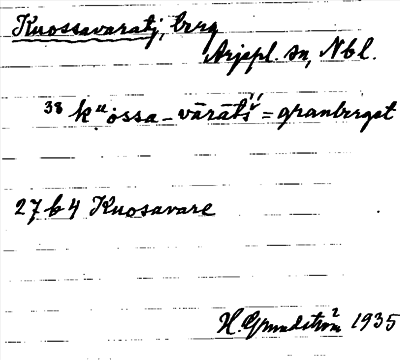 Kuossavaratj, berg
Arjepl. sn, Nbl.
38 kᵘossa-vārātš́ = granberget
27 b 4 Kuosavare
H. Grundström 1935